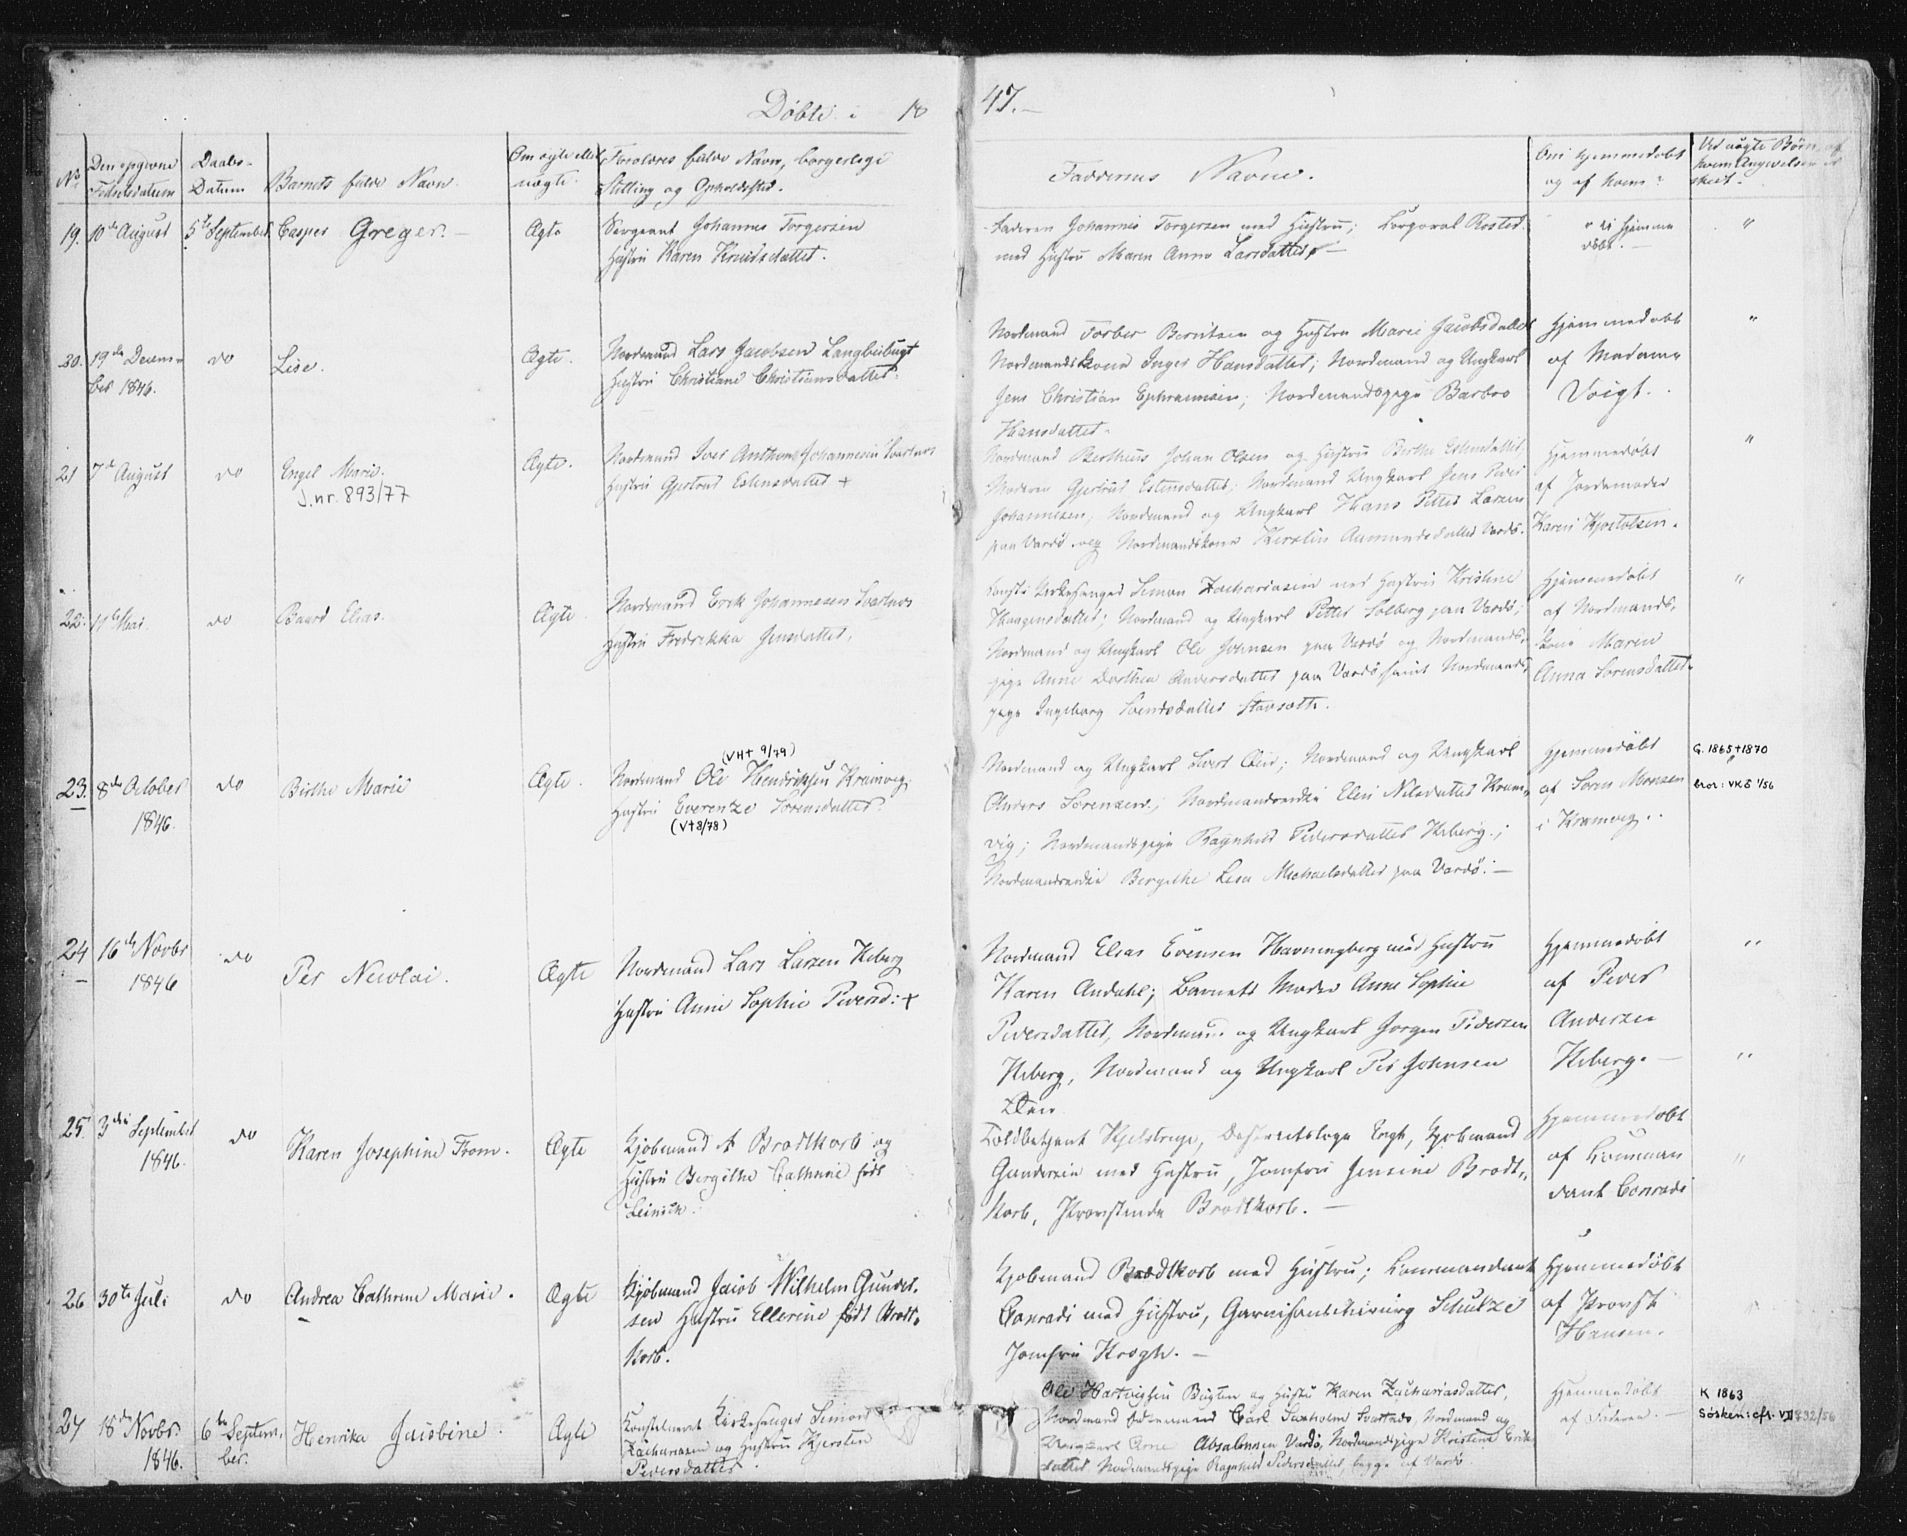 Døbte i 18
47.
No
Den opgivne
Fødselsdatum
Daabs-
Datum
Barnets fulde Navn.
Om ægte eller
uægte.
Forældres fulde Navn, borgerlige
Stilling og Opholdssted.
Faddernes Navne.
Om hjemmedøbt
og af hvem?
Ved uægte Børn, af
hvem Angivelsen er
skeet.
19. 10de August
5te September
Casper Greger.
Ægte
Sergeant Johannes Torgersen
Hustru Karen Knudsdatter.
Faderen Johannes Torgersen med Hustru; Korporal Rosted
med Hustru Maren Anna Larsdatter
ei hjemme
døbt.
"
20. 19de Decem
ber 1846.
do
Lise.
Ægte.
Nordmand Lars Jacobsen Langbuibugt
Hustru Christiane Christiansdatter.
Nordmand Berntsen og Hustru Marie Jacobsdatter
Nordmandskone Inger Hansdatter; Nordmand og Ungkarl
Jens Christian Ephraimsen; Nordmandspige Barbro
Hansdatter.
Hjemmedøbt
af Madame
Voigt.
"
21 7de August
do
Engel Marie.
J.nr. 893/77
Ægte.
Nordmand Iver Anthon Johannesen Svartnes
Hustru Gjertrud Estensdatter +
Nordmand Bertheus Johan Olsen og Hustru Birthe Estensdatter,
Moderen Gjertrud Estensdatter; Nordmand Ungkarl Jens Peder
Johannesen; Nordmand og Ungkarl Hans Petter Larsen
paa Vardø og Nordmandskone Kirstin Aamundsdatter Vardø.
Hjemmedøbt
af Jordemoder
Karen
"
22. 11te Mai.
do
Baard Elias.
Ægte.
Nordmand Erik Johannesen Svartnes
Hustru Fredrikka Jensdatter.
Kirkesanger Simon Zachariasen med Hustru Kristine
Haagensdatter; Nordmand og Ungkarl Petter Solberg paa Vardø;
Nordmand og Ungkarl Ole Johnsen paa Vardø og Nordmands-
pige Anne Dorthea Andersdatter paa Vardø samt Nordmands
pige Ingeborg Svendsdatter
Hjemmedøbt
af Nordmands-
kone Maren
Anna Sørensdatter
"
23. 8de October
1846.
do
Birthe Marie
Ægte.
(VH+ 9/79)
Nordmand Ole Hendriksen Kramvig.
Hustru Everentze Sørensdatter.
(V+8/78)
Nordmand og Ungkarl Sivert; Nordmand og Ungkarl
Anders Sørensen; Nordmandsenke Elen Nilsdatter Kram-
vig; Nordmandspige Ragnhild Pedersdatter Kiberg.;
Nordmandsenke Bergithe Lisa Michaelsdatter paa Vardø.
Hjemmedøbt
af Søren Monsen
i Kramvig.
G. 1865 +1870
bror: VK 5 1/56
24 16de Novbr
1846
do
Per Nicolai.
Ægte
Nordmand Lars Larsen Kiberg
Hustru Anne Sophie Pedersd: +
Nordmand Elias Evensen Havningberg med Hustru
Karen Andahl; Barnets Moder Anne Sophie
Pedersdatter, Nordmand og Ungkarl Jørgen Pedersen
Kiberg, Nordmand og Ungkarl Per Johnsen
Hjemmedøbt
af Peder
Andersen
Kiberg.
"
"
25. 3die September
1846.
do
Karen Josephine From.
Ægte
Kjøbmand A Brodtkorb og
Hustru Bergithe Cathrine født
Leinich.
Toldbetjent Kjelstrup, Districtslæge Ergh, Kjøbmand
Gundersen med Hustru, Jomfru Jensine Brodt-
korb, Provstinde Brodtkorb.
Hjemmedøbt
af Komman
dant Conradi
"
26 30te Juli
do
Andrea Cathrine Marie.
Ægte
Kjøbmand Jacob Wilhelm Gunder-
sen Hustru Ellerine født Brodt-
korb.
Kjøbmand Brodtkorb med Hustru; Kommandant
Conradi med Hustru, Garnisonschirurg Schulze
Jomfru Krogh.
Hjemmedøbt
af Provst
Hansen.
27 18de Novbr.
1846.
6te Septem-
ber.
Henrika Jaisbine.
Ægte
Konstitueret Kirkesanger Simon
Zachariasen og Hustru Kjersten
Pedersdatter.
Ole Hartvigsen Bugten og Hustru Karen Zachariasdatter,
Nordmand Carl Saxholm Svartnes, Nordmand og
Ungkarl Arne Absalonsen Vardø, Nordmandspige Kristine Erik-
datter Nordmandspige Ragnhild Pedersdatter, begge af Vardø
Hjemmedøbt
af Faderen.
K 1863
Søsken: cfr. VII 792/56